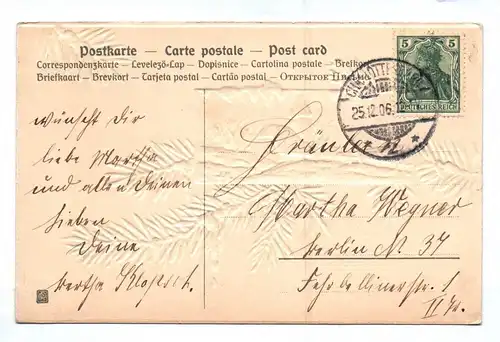 Postkarte – Carte postale – Post card
Correspondenzkarte – Levelező-Lap – Dopisnice – Cartolina postale – Breikort
Briefkaart – Brevkort – Tarjeta postal – Cartão postal – Открытое
5 5
DEUTSCHES REICH
25.12.06.
wünscht dir
liebe Martha
und allen deinen
lieben
deine
Bertha
Fräulein
Martha Wegner
Berlin N. 37
Fehrbellinerstr. 1
II Tr.